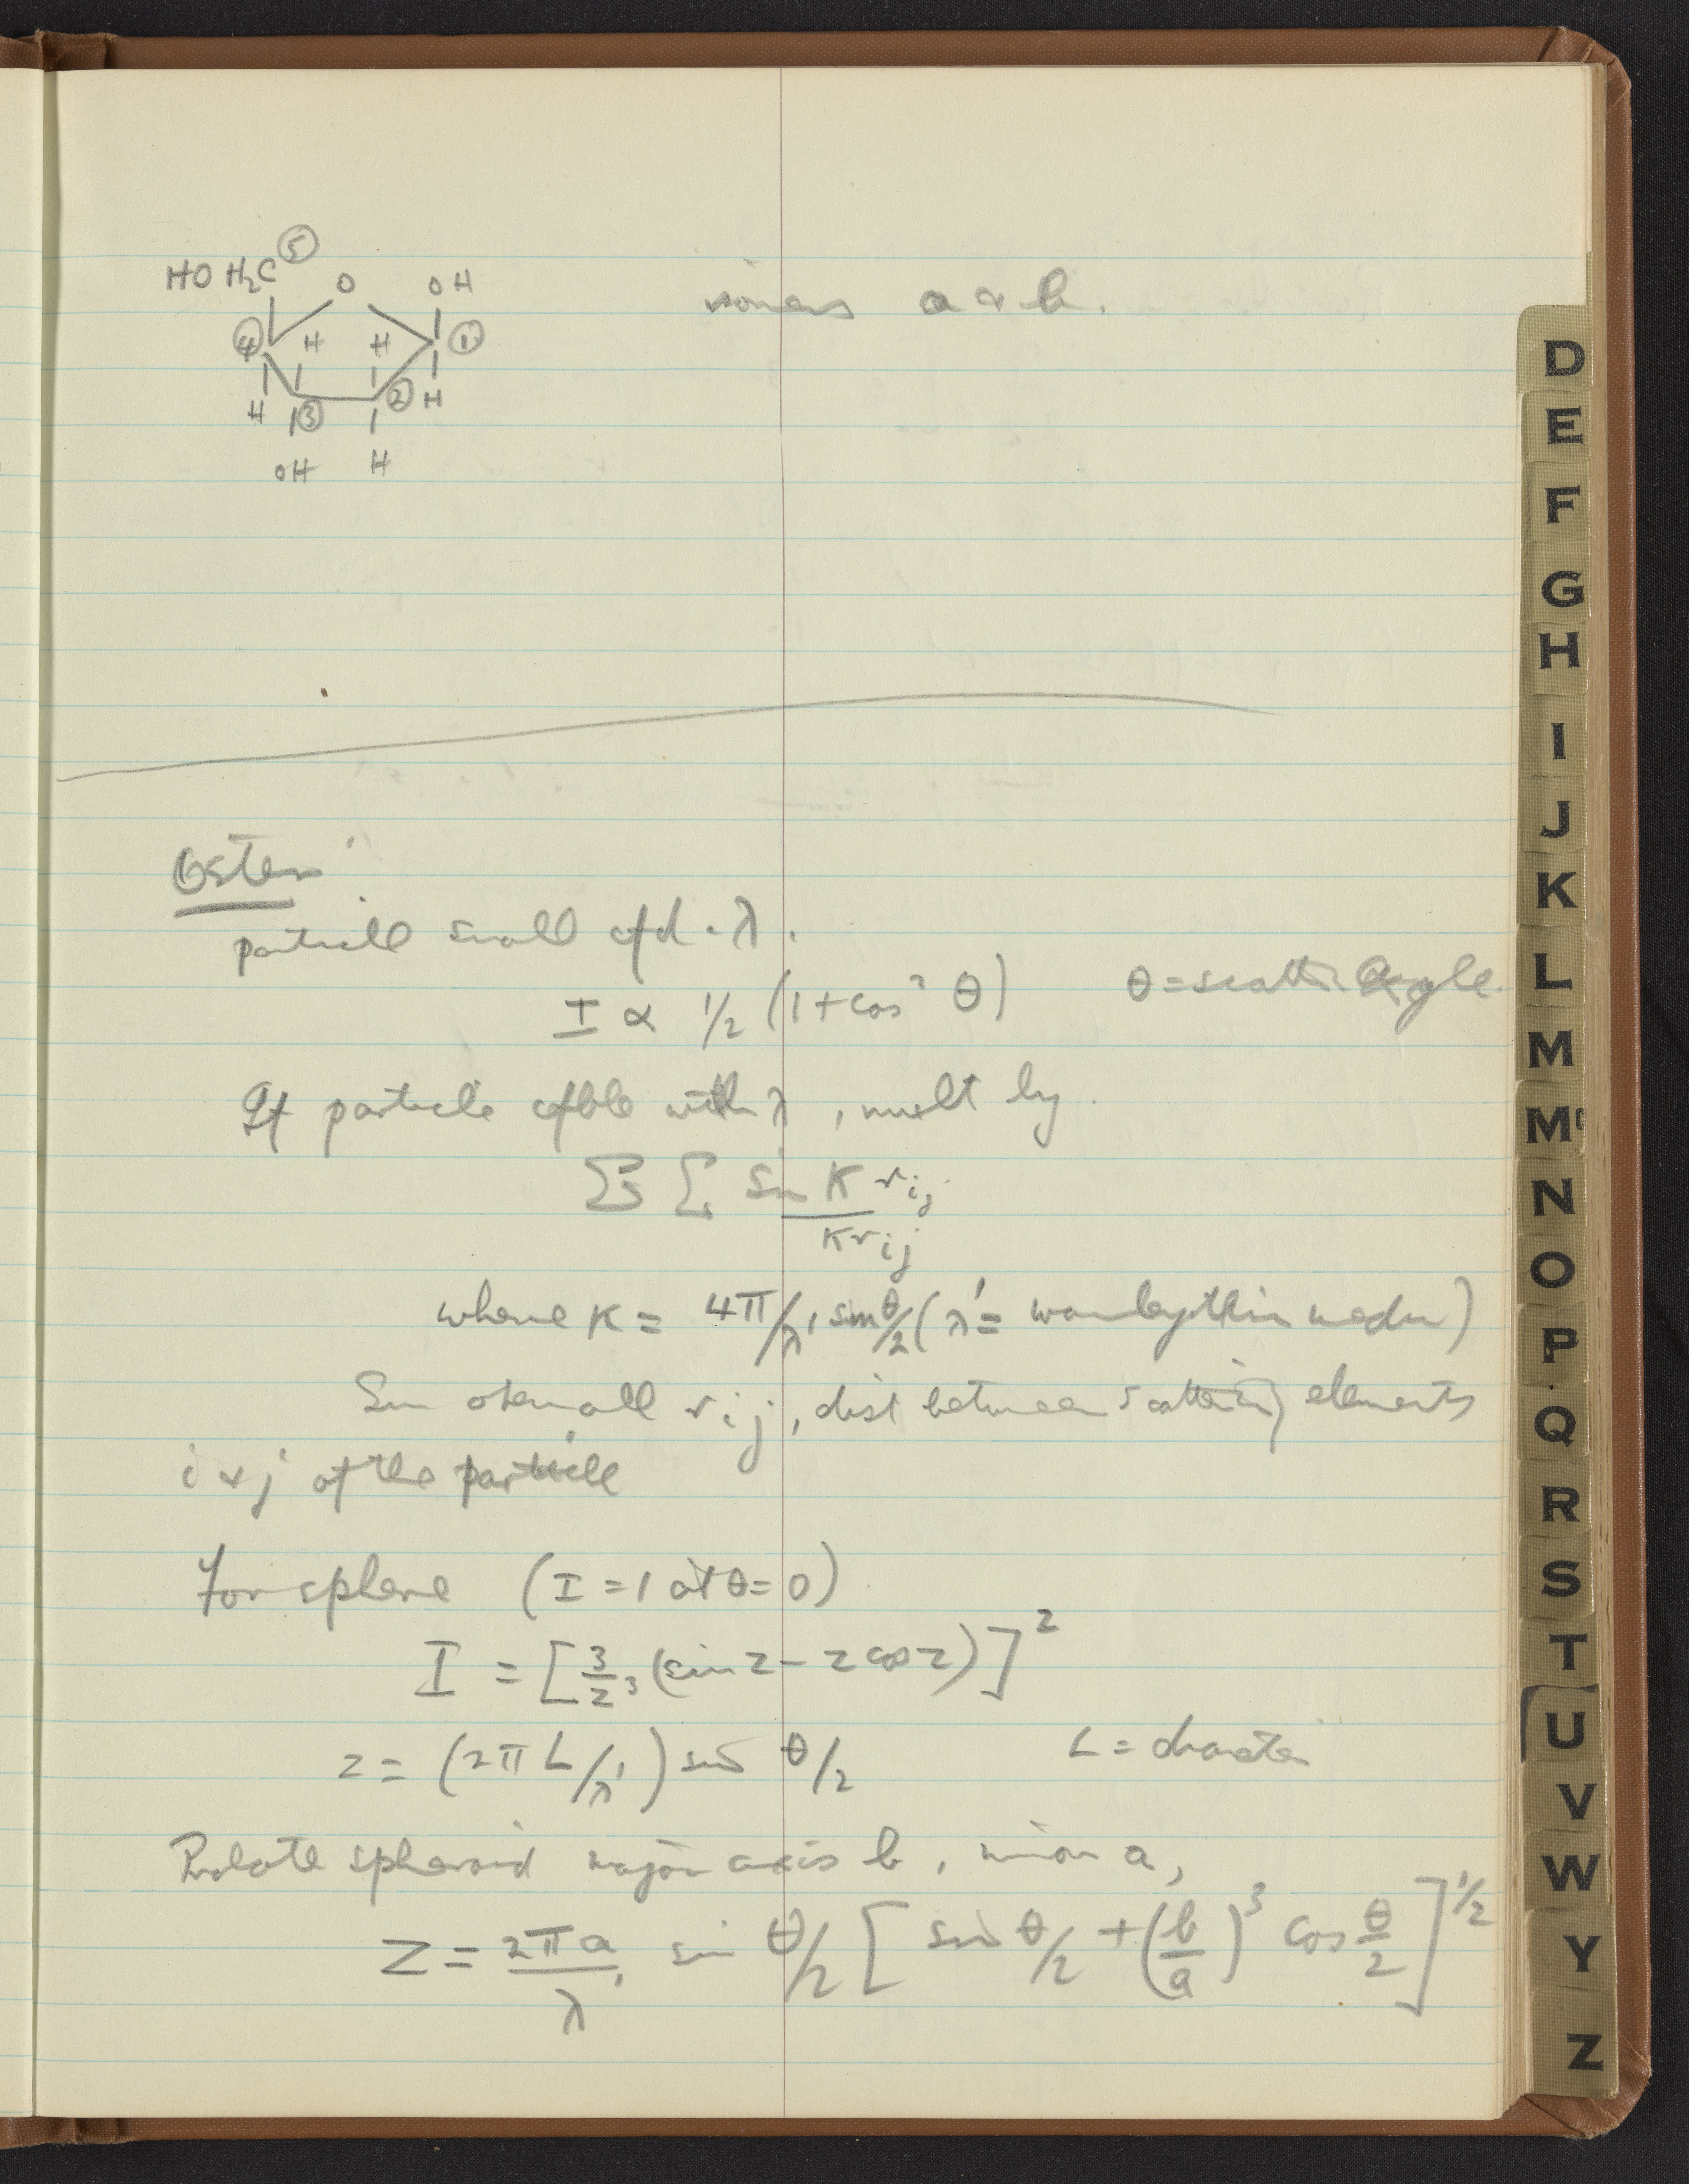 HO H₂C ⑤
O
OH
isomers a & b.
④ H H ①
H ③ ② H
OH H
Oster
particle small cfd. λ.
I ∝ 1/2 (1 + cos² θ) θ = scatt. angle.
If particle cfble with λ, mult by.
Σ Σ sin K rij / K rij
where K = 4π/λ' sin θ/2 (λ' = wavelength in medm)
Sum over all rij, dist between scattering elements
i & j of the particle
For sphere (I = 1 at θ = 0)
I = [3/z³ (sin z - z cos z)]²
z = (2πL/λ') sin θ/2 L = diameter
Prolate spheroid major axis b, minor a,
Z = 2πa/λ' sin θ/2 [sin θ/2 + (b/a)³ cos θ/2]^1/2
D
E
F
G
H
I
J
K
L
M
Mᶜ
N
O
P
Q
R
S
T
U
V
W
Y
Z